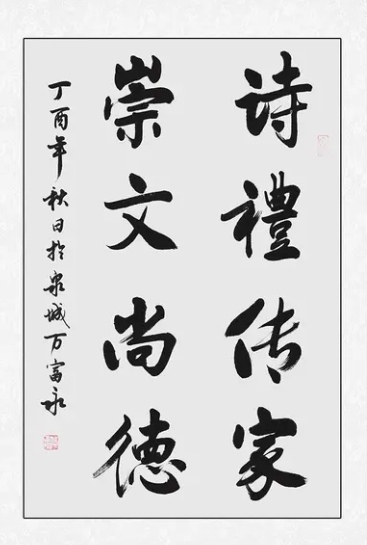 诗禮传家
崇文尚德
丁酉年秋日于泉城万富永